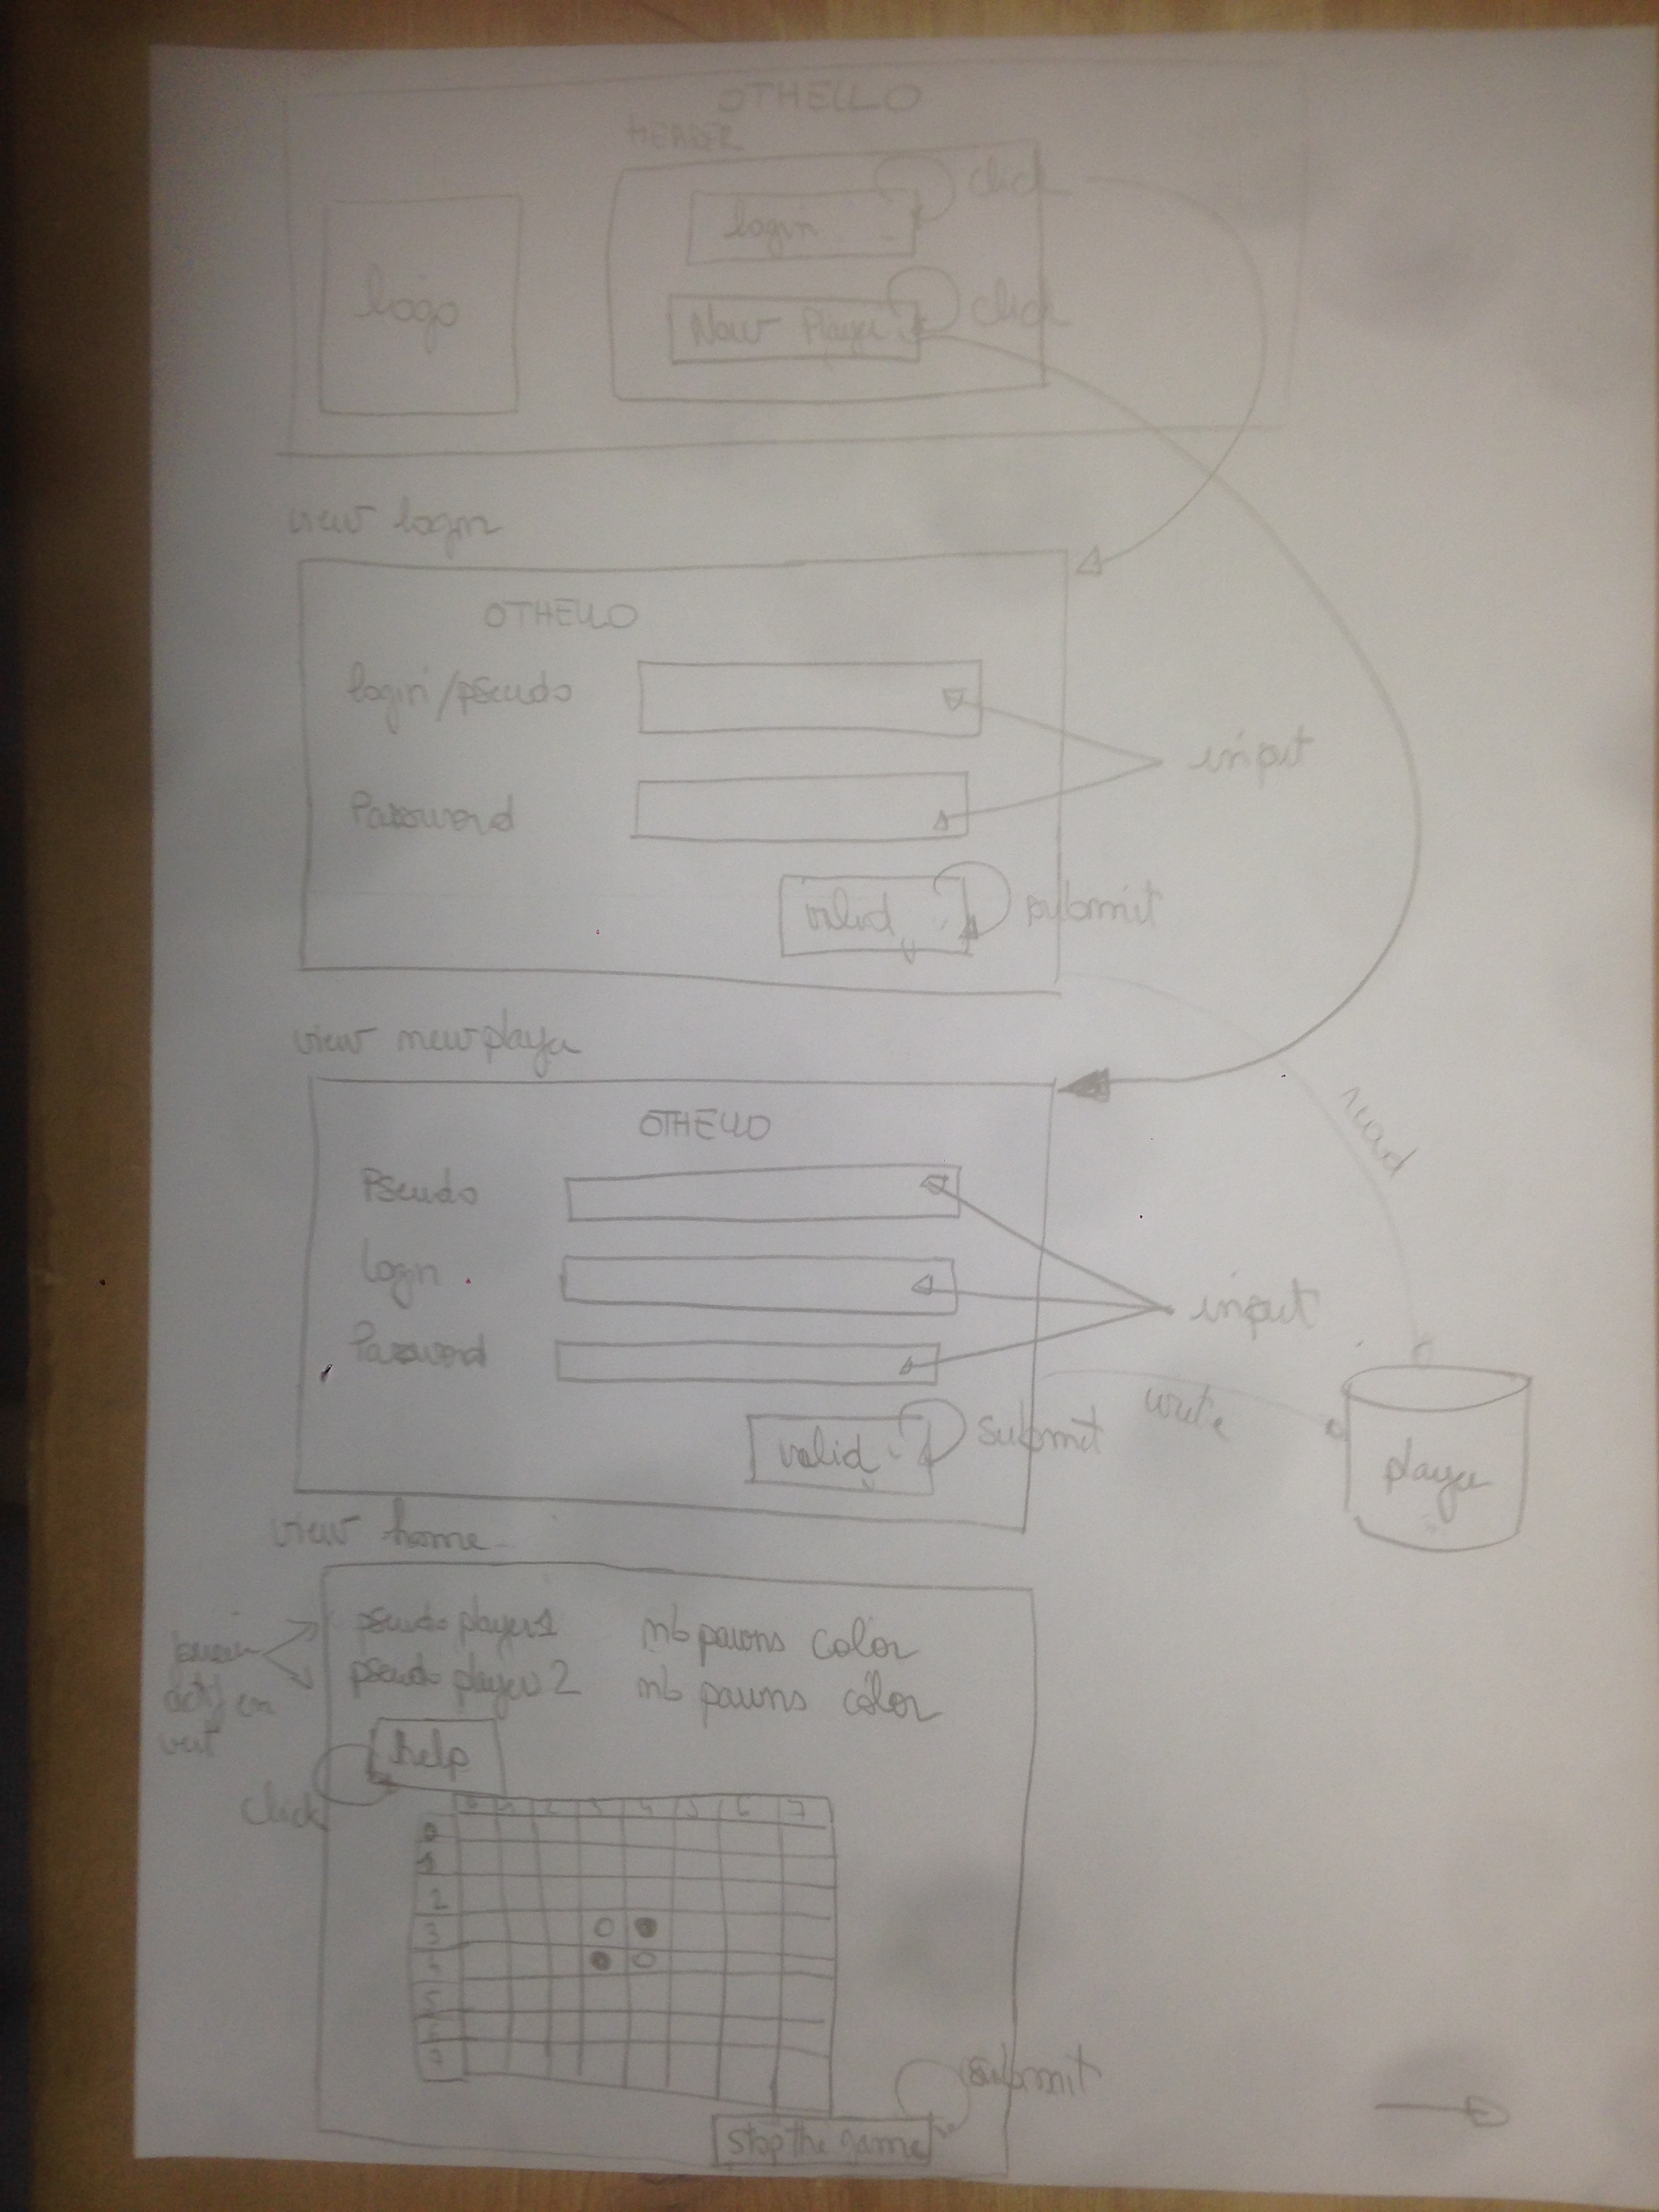 OTHELLO
HEADER
login
click
logo
New Player
click
view login
OTHELLO
login/pseudo
input
Password
valid
submit
view new player
read
OTHELLO
Pseudo
login
input
Password
write
valid
submit
player
view home
pseudo player 1 nb pawns color
pseudo player 2 nb pawns color
actif en
vert
help
click
0 1 2 3 4 5 6 7
0
1
2
3
4
5
6
7
submit
stop the game